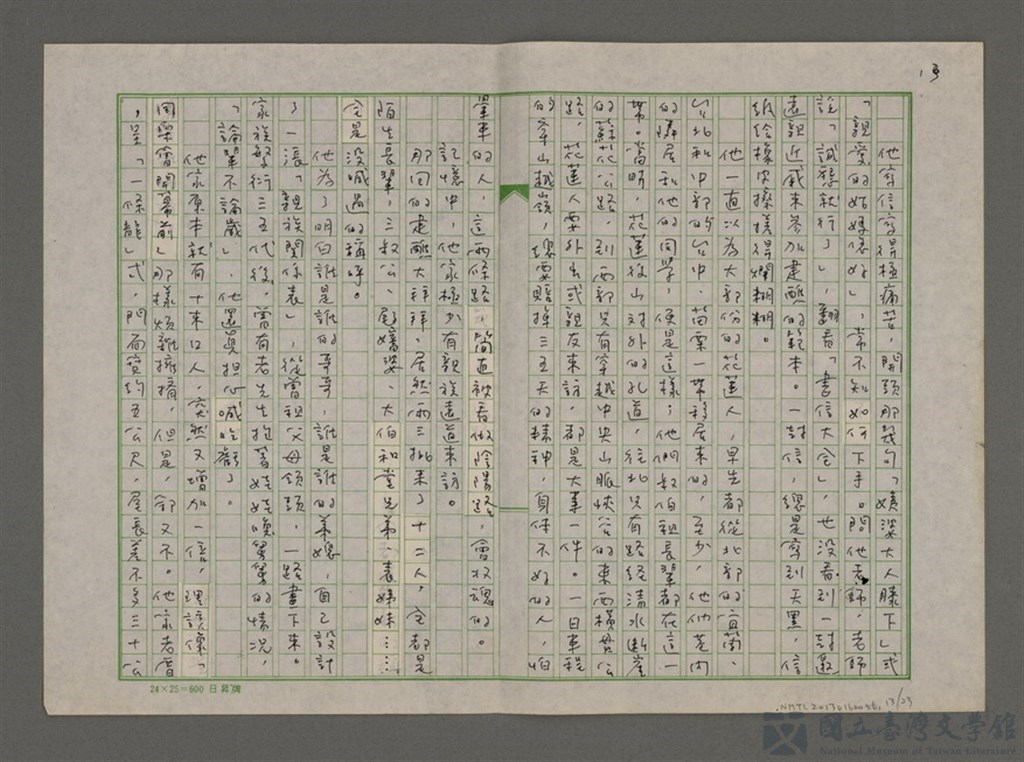 13
他寫信寫得極痛苦,開頭那幾句「姨婆大人膝下」或
「親愛的姑媽您好」,常不知如何下手。問他老師,老師
說「誠懇就行了」,翻看「書信大全」,也沒看到一封邀
遠親近戚來參加建醮的範本。一封信,總是寫到天黑,信
紙給橡皮擦搓得爛糊糊。
他一直以為大部份的花蓮人,早先都從北部的宜蘭、
台北和中部的台中、苗栗一帶移居來的,至少,他他巷內
的隣居和他的同學,便是這樣;他們叔伯祖長輩都在這一
帶。當時,花蓮後山對外的孔道,往北只有路經清水斷崖
的蘇花公路,到西部只有穿越中央山脈峽谷的東西橫貫公
路,花蓮人要外出或親友來訪,都是大事一件。一日車程
的牽山越嶺,總要賠掉三五天的精神,身体不好的人,怕
暈車的人,這兩條路,簡直被看做陰陽路,會收魂的。
記憶中,他家極少有親族遠道來訪。
那回的建醮大拜拜,居然兩三批來了十二人,全都是
陌生長輩,三叔公、屘嬸婆、大伯和堂兄弟、表姊妹……
全是沒喊過的稱呼。
他為了明白誰是誰的哥哥,誰是誰的弟媳,自己設計
了一張「親族關係表」,從曾祖父母領頭,一路畫下來。
家族繁衍三五代後,會有老先生抱著娃娃喚舅舅的情况,
「論輩不論歲」,他還真担心喊吃虧了。
他家原本就有十來口人,突然又增加一倍,理該像「
同樂會開幕前」那樣煩雜擁擠,但是,卻又不。他家老厝
,呈「一條龍」式,門面寬約五公尺,屋長差不多三十公
24×25=600 日昇牌
NMTL20130160056, 13/23
國立臺灣文學館
National Museum of Taiwan Literature